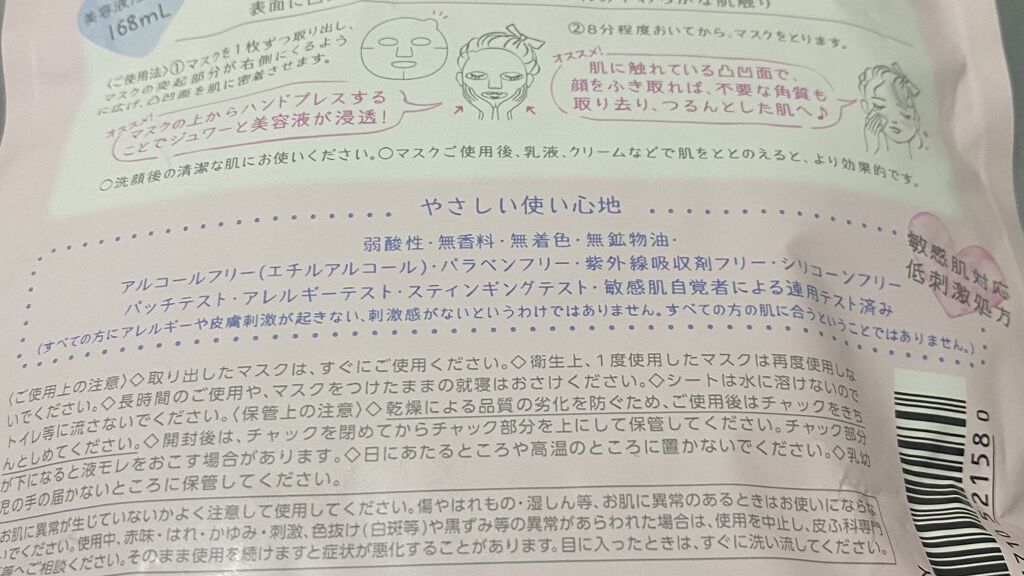 美容液
168mL
〈ご使用法〉①マスクを1枚ずつ取り出し、
マスクの突起部分が右側にくるよう
に広げ、凸凹面を肌に密着させます。
オススメ!
マスクの上からハンドプレスする
ことでジュワーと美容液が浸透!
②8分程度おいてから、マスクをとります。
オススメ!
肌に触れている凸凹面で、
顔をふき取れば、不要な角質も
取り去り、つるんとした肌へ♪
○洗顔後の清潔な肌にお使いください。○マスクご使用後、乳液、クリームなどで肌をととのえると、より効果的です。
やさしい使い心地
弱酸性・無香料・無着色・無鉱物油・
アルコールフリー(エチルアルコール)・パラベンフリー・紫外線吸収剤フリー・シリコーンフリー
パッチテスト・アレルギーテスト・スティンギングテスト・敏感肌自覚者による連用テスト済み
(すべての方にアレルギーや皮膚刺激が起きない、刺激感がないというわけではありません。すべての方の肌に合うということではありません。)
敏感肌対応
低刺激処方
〈ご使用上の注意〉◇取り出したマスクは、すぐにご使用ください。◇衛生上、1度使用したマスクは再度使用しな
いでください。◇長時間のご使用や、マスクをつけたままの就寝はおさけください。◇シートは水に溶けないので
トイレ等に流さないでください。〈保管上の注意〉◇乾燥による品質の劣化を防ぐため、ご使用後はチャックをきち
んとしめてください。◇開封後は、チャックを閉めてからチャック部分を上にして保管してください。チャック部分
が下になると液モレをおこす場合があります。◇日にあたるところや高温のところに置かないでください。◇乳幼
児の手の届かないところに保管してください。
お肌に異常が生じていないかよく注意して使用してください。傷やはれもの・湿しん等、お肌に異常のあるときはお使いにならな
いでください。使用中、赤味・はれ・かゆみ・刺激、色抜け(白斑等)や黒ずみ等の異常があらわれた場合は、使用を中止し、皮ふ科専門
等へご相談ください。そのまま使用を続けますと症状が悪化することがあります。目に入ったときは、すぐに洗い流してください。
521580